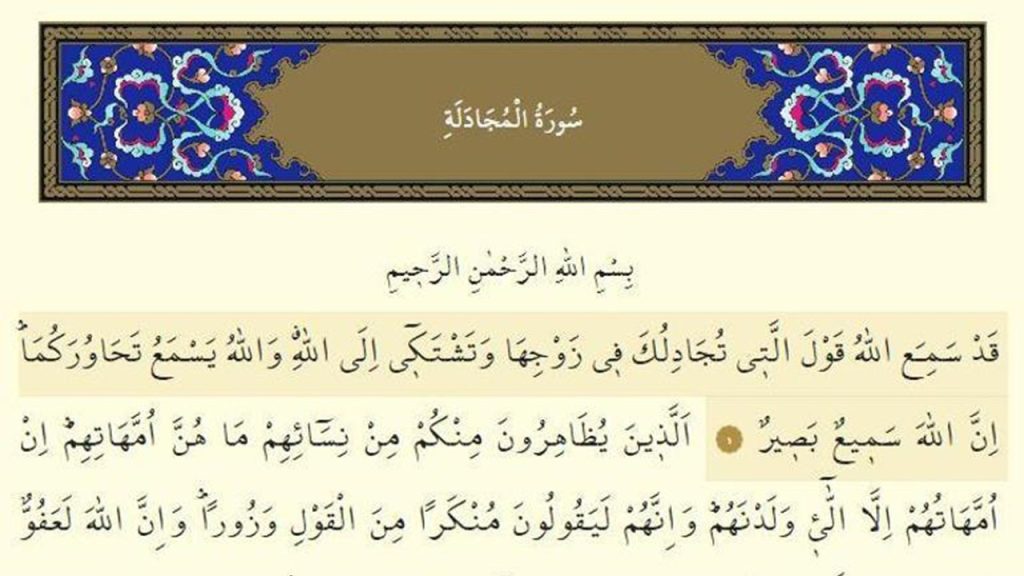 سُورَةُ الْمُجَادَلَةِ
بِسْمِ اللهِ الرَّحْمٰنِ الرَّحٖيمِ
قَدْ سَمِعَ اللهُ قَوْلَ الَّتٖى تُجَادِلُكَ فٖى زَوْجِهَا وَتَشْتَكٖٓى اِلَى اللهِۗ وَاللهُ يَسْمَعُ تَحَاوُرَكُمَاۜ
اِنَّ اللهَ سَمٖيعٌ بَصٖيرٌ ١ اَلَّذٖينَ يُظَاهِرُونَ مِنْكُمْ مِنْ نِسَٓائِهِمْ مَا هُنَّ اُمَّهَاتِهِمْۜ اِنْ
اُمَّهَاتُهُمْ اِلَّا الّٰٓـٖٔى وَلَدْنَهُمْۜ وَاِنَّهُمْ لَيَقُولُونَ مُنْكَرًا مِنَ الْقَوْلِ وَزُورًاۜ وَاِنَّ اللهَ لَعَفُوٌّ